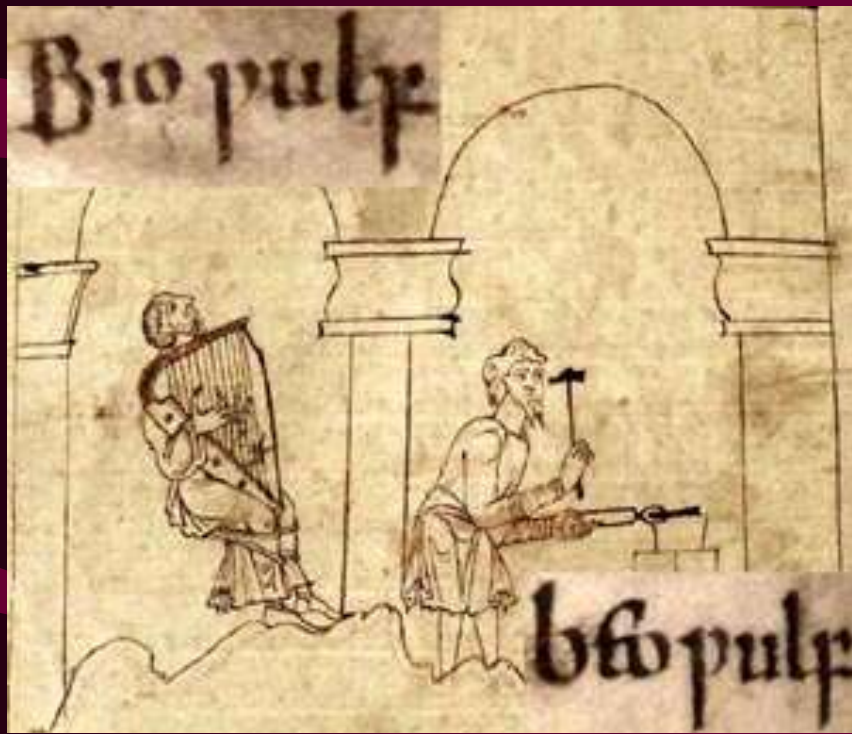 Bıo ƿulf
beoƿulf